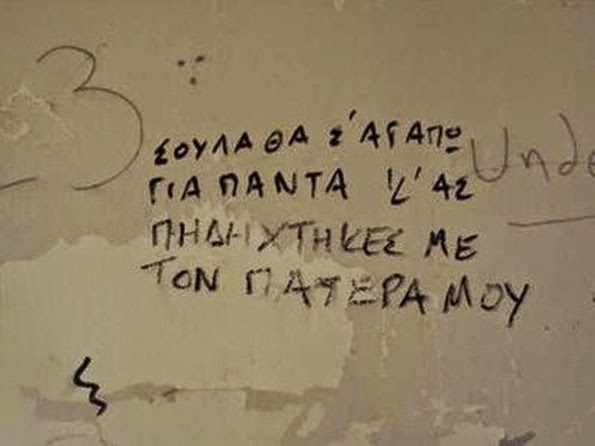 3
ΣΟΥΛΑ ΘΑ Σ'ΑΓΑΠΩ
ΓΙΑ ΠΑΝΤΑ Κ'ΑΣ
ΠΗΔΗΧΤΗΚΕΣ ΜΕ
ΤΟΝ ΠΑΤΕΡΑ ΜΟΥ
Unde